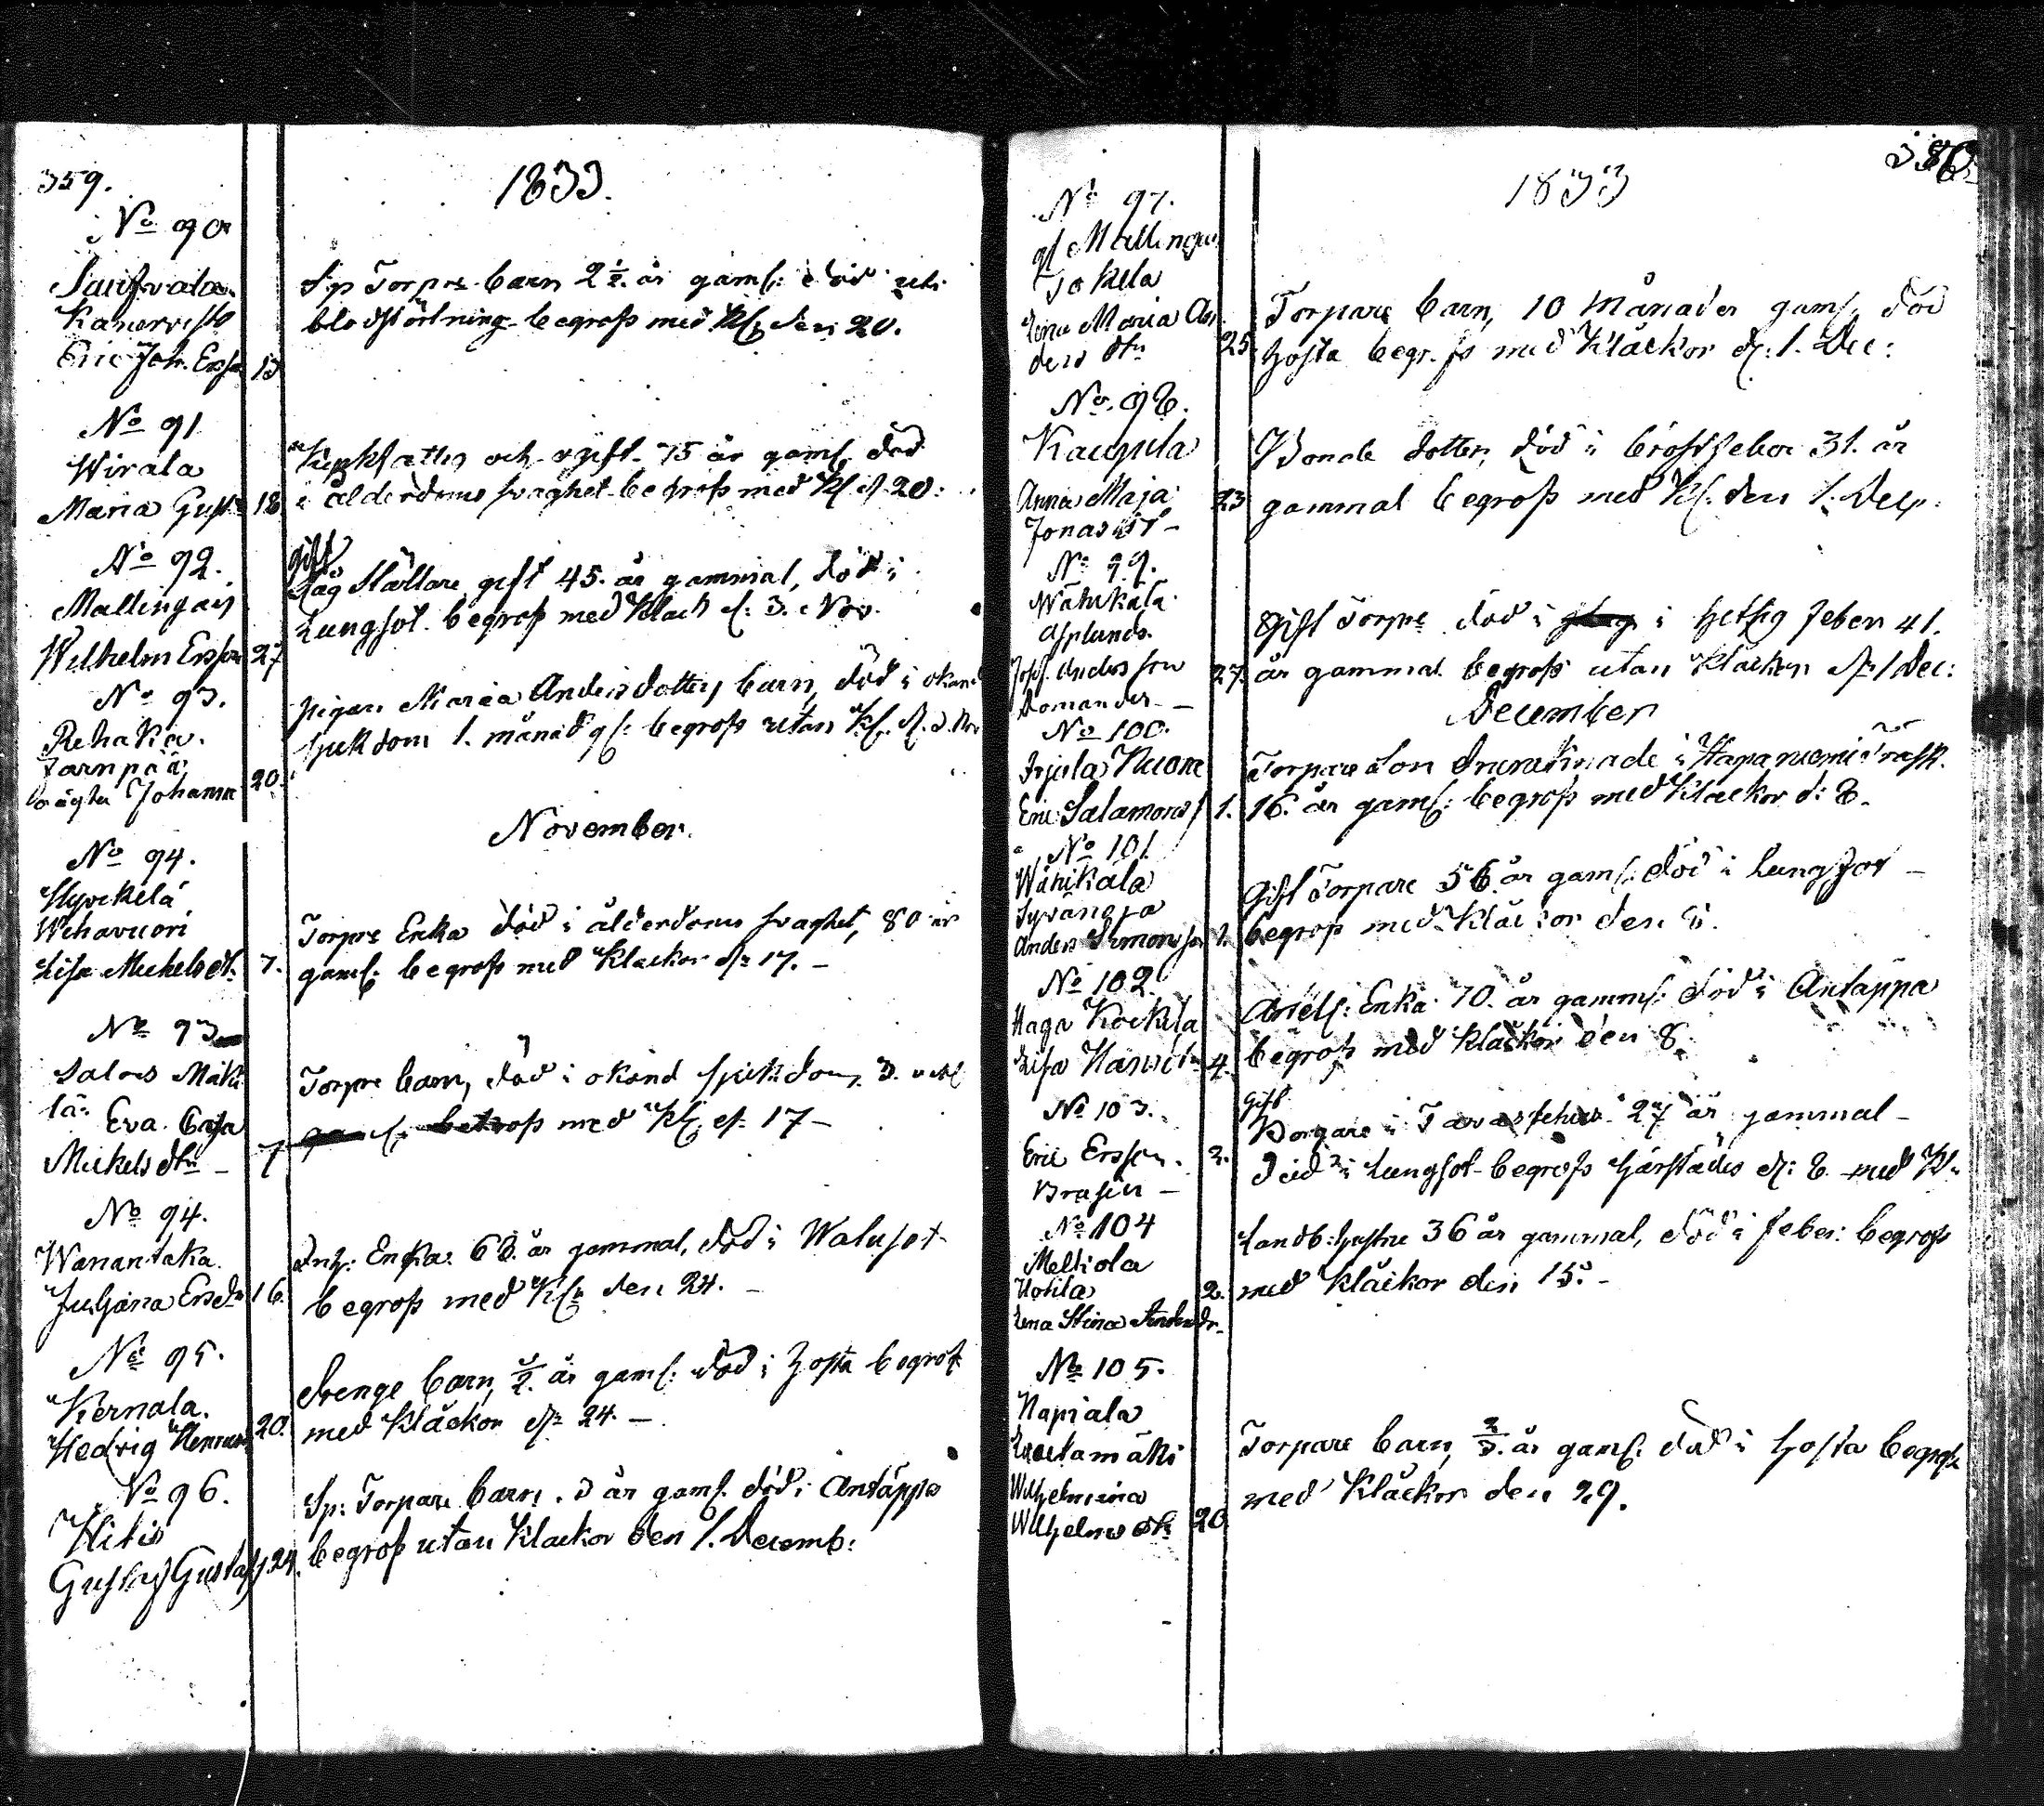 359.
1833.
No 90
Saufvala
Kanervisto
Eric Joh. Ersson 13
Sp Torprs barn 2 1/2 år gaml: död uti
blodstörtning begrofs med Kl: den 20.
No 91
Wirala
Maria Gust: 18
och ogift 75 år gaml död
i ålderdoms svaghet begrofs med Kl d. 20:
No 92.
Mallingais
Wilhelm Ersson 27
Gift
gift 45. år gammal, död i
Lungsot begrofs med Klock d: 3. Nov.
No 93.
Rehakka.
Järnpää
oägta Johanna 20.
pigan Maria Andersdotters barn, död i okänd
sjukdom 1. månad gl: begrofs utan Kl. d. 3. Nov
November.
No 94.
Hyvikelä
Wehavuori
Lisa Michelsdt. 7.
Torprs Enka död i ålderdoms svaghet, 80 år
gaml: begrofs med Klockor d: 17. –
No 93
Salois Mäki
lä. Eva Cajsa
Mickels dtr – 7
Torprs barn, död i okänd sjukdom 3. vek
begrofs med Kl: d: 17 –
No 94.
Wanantaka.
Juliana Ersdr 16.
Inh: Enka 68 år gammal, död i Watusot
begrofs med Kl: den 24. –
No 95.
Kernala.
Hedvig Henrics 20.
Drenge barn, 1/2 år gaml: död i hosta begrof
med Klåckor d: 24. –
No 96.
Hitis
Gustaf Gustafs 24.
Sp: Torpare barn. 3 år gaml. död i Andtäppa
begrofs utan Klackor den 1. Decemb:
1833
No 97.
Mallinga
Jokela
Lena Maria An
ders dtr 25
Torpare barn, 10 Månader gaml. död
hosta begr.fs med Klåckor d: 1. Dec:
No. 98.
Kaupila
Anna Maja 23
Jonas dt –
Bonde dotter, död i bröstfeber 31. år
gammal begrofs med Kl: den 1. Dec.
No 99.
Wähikälä
Asplunds.
Josef Andersson 27.
Domander –
Gift Torpre död i i hetsig feber 41.
år gammal begrofs utan Klåckor d: 1 Dec:
December
No 100.
Irjala Nuone
Eric Salamons 1.
Torpare Son Drunknade i Hapaniemi Träsk.
16. år gaml: begrofs med Klackor d: 8.
No 101.
Wähikälä
Syvänoja
Anders Simonsson 1.
Gift Torpare 56 år gaml. död i Lungsot –
begrofs med Klåckor den 8.
No 102.
Haga Kockila
Lisa Hansdtr 4.
Enka 70. år gamml: död i Andtäppa
begrofs med Klåckor den 8.
No 103.
Eric Ersson. 2.
Brasen –
Gift
Borgare i Tavastehus 27 år gammal –
Död i Lungsot begrofs härstädes d: 8. med Kl.
No 104
Melkola
Uotila 2.
Lena Stina Anders dr.
Landb: hustru 36 år gammal, död i feber: begrofs
med Klåckor den 15. –
No 105.
Napiala
Wilhelmina
Wilhelms dtr 20
Torpare barn, 2/3. år gaml. död i hosta begrofs
med Klåckor den 29.